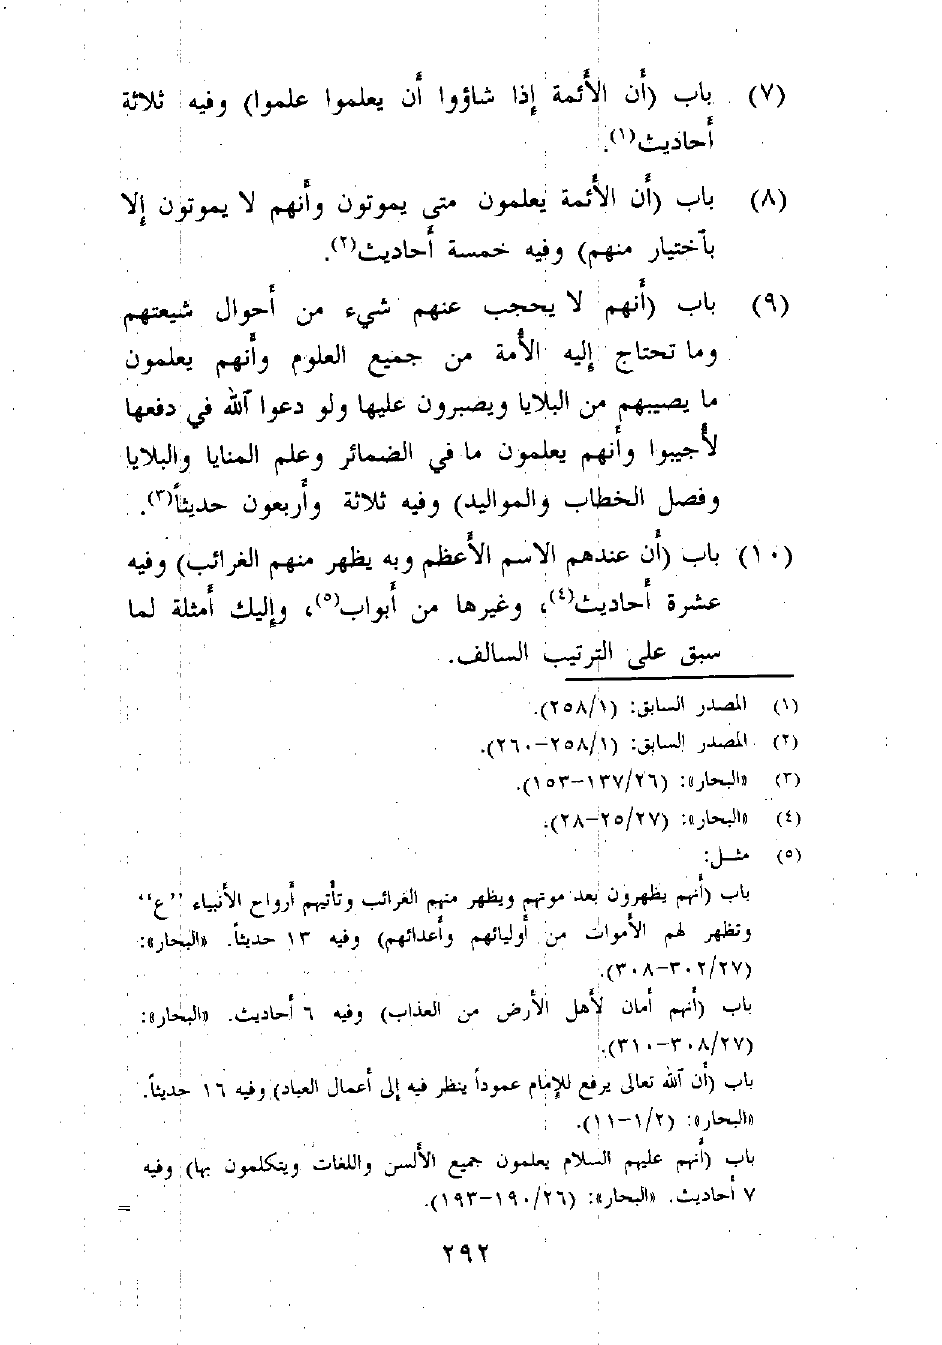 (٧) باب (أن الأئمة إذا شاؤوا أن يعلموا علموا) وفيه ثلاثة
أحاديث(١).
(٨) باب (أن الأئمة يعلمون متى يموتون وأنهم لا يموتون إلا
بآختيار منهم) وفيه خمسة أحاديث(٢).
(٩) باب (أنهم لا يحجب عنهم شيء من أحوال شيعتهم
وما تحتاج إليه الأمة من جميع العلوم وأنهم يعلمون
ما يصيبهم من البلايا ويصبرون عليها ولو دعوا آلله في دفعها
لأجيبوا وأنهم يعلمون ما في الضمائر وعلم المنايا والبلايا
وفصل الخطاب والمواليد) وفيه ثلاثة وأربعون حديثاً(٣).
(١٠) باب (أن عندهم الاسم الأعظم وبه يظهر منهم الغرائب) وفيه
عشرة أحاديث(٤)، وغيرها من أبواب(٥)، وإليك أمثلة لما
سبق على الترتيب السالف.
(١) المصدر السابق: (٢٥٨/١).
(٢) المصدر السابق: (٢٥٨/١-٢٦٠).
(٣) «البحار»: (١٣٧/٢٦-١٥٣).
(٤) «البحار»: (٢٥/٢٧-٢٨).
(٥) مثـل:
باب (أنهم يظهرون بعد موتهم ويظهر منهم الغرائب وتأتيهم أرواح الأنبياء ''ع''
وتظهر لهم الأموات من أوليائهم وأعدائهم) وفيه ١٣ حديثاً. «البحار»:
(٣٠٢/٢٧-٣٠٨).
باب (أنهم أمان لأهل الأرض من العذاب) وفيه ٦ أحاديث. «البحار»:
(٣٠٨/٢٧-٣١٠).
باب (أن آلله تعالى يرفع للإمام عموداً ينظر فيه إلى أعمال العباد) وفيه ١٦ حديثاً.
«البحار»: (١/٢-١١).
باب (أنهم عليهم السلام يعلمون جميع الألسن واللغات ويتكلمون بها) وفيه
٧ أحاديث. «البحار»: (١٩٠/٢٦-١٩٣).
=
٢٩٢